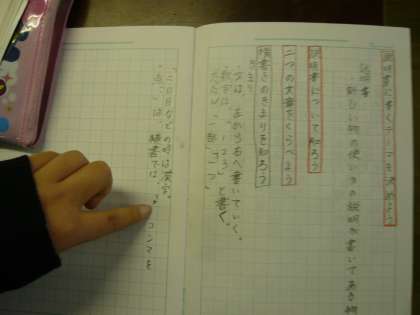 説明書に書くテーマを決めよう
説明書
・新しい物の使い方の説明が書いてある物
説明書について知ろう
二つの文章をくらべよう
横書きのきまりを知ろう
きまり
・文は、左から右へ書いていく。
・数字は、「1、2」と書く。
ただし「一部」「一つ」
「二日月などの時は漢字。
・点「、」は、横書では、「,」コンマを